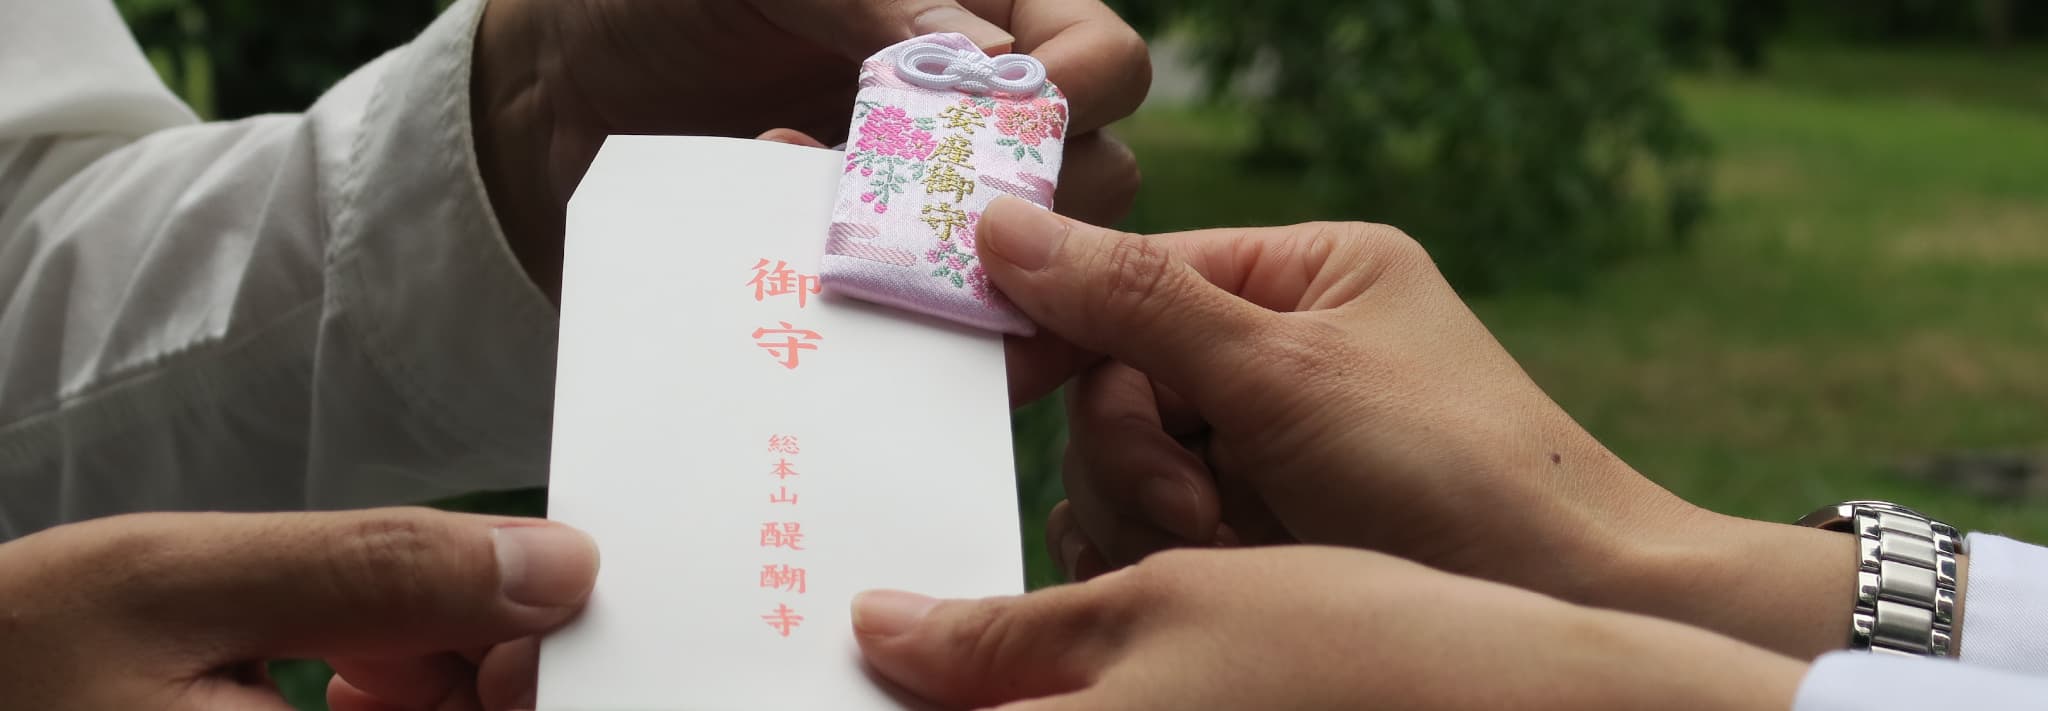 安産御守
御守
総本山 醍醐寺